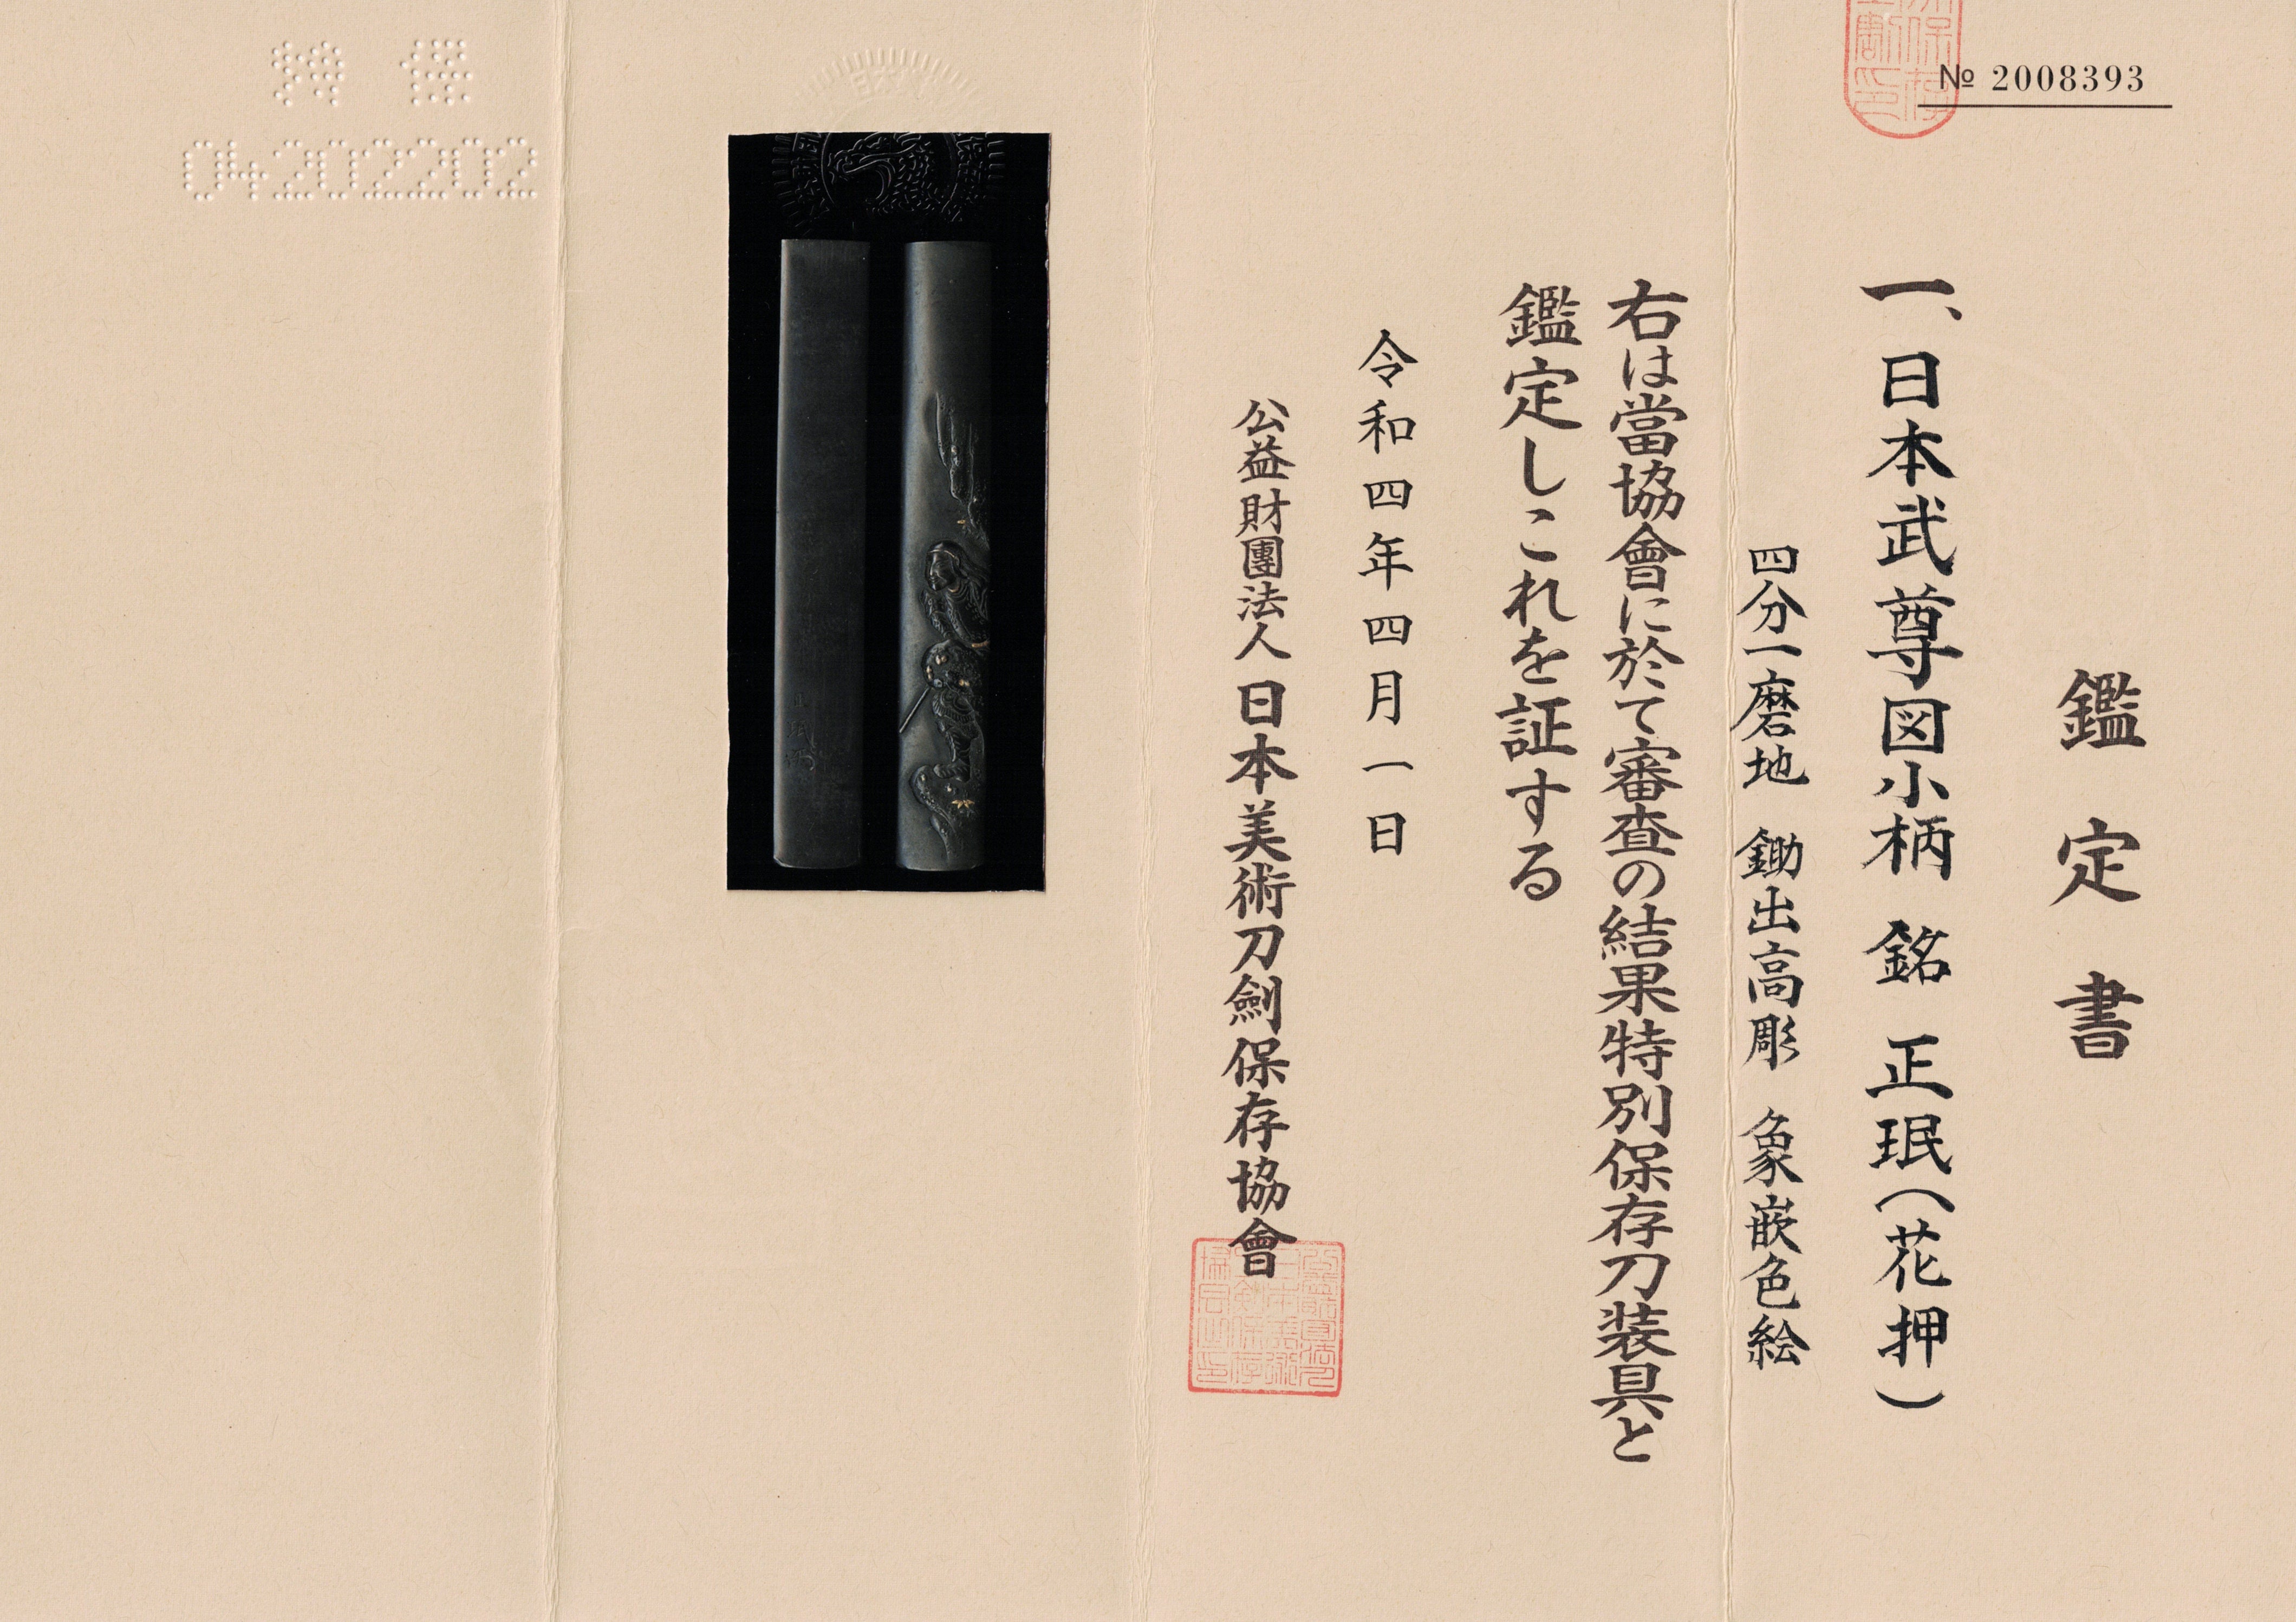 № 2008393
鑑定書
一、日本武尊図小柄 銘 正珉(花押)
四分一磨地 鋤出高彫 象嵌色絵
右は當協會に於て審査の結果特別保存刀装具と
鑑定しこれを証する
令和四年四月一日
公益財團法人日本美術刀劍保存協會
04202202